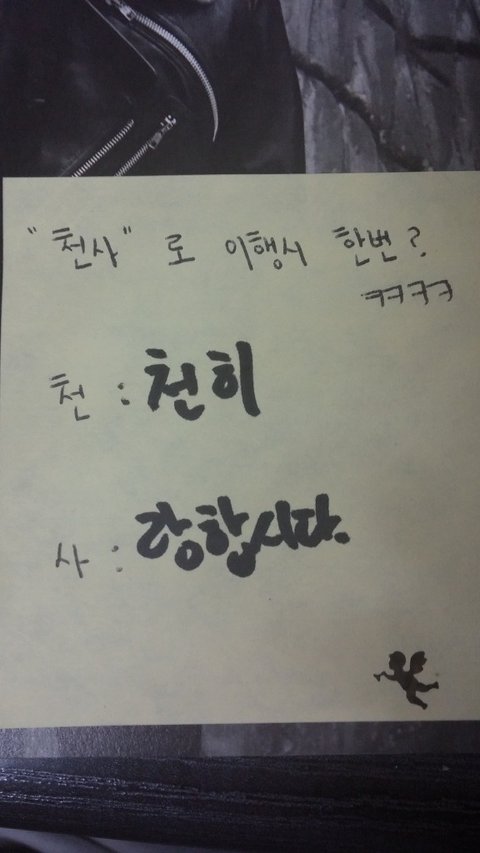 "천사" 로 이행시 한번?
ㅋㅋㅋㅋ
천 : 천히
사 : 랑합시다.